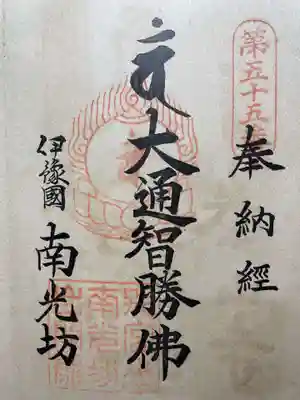 第五十五番
奉納經
大通智勝佛
伊豫國
南光坊